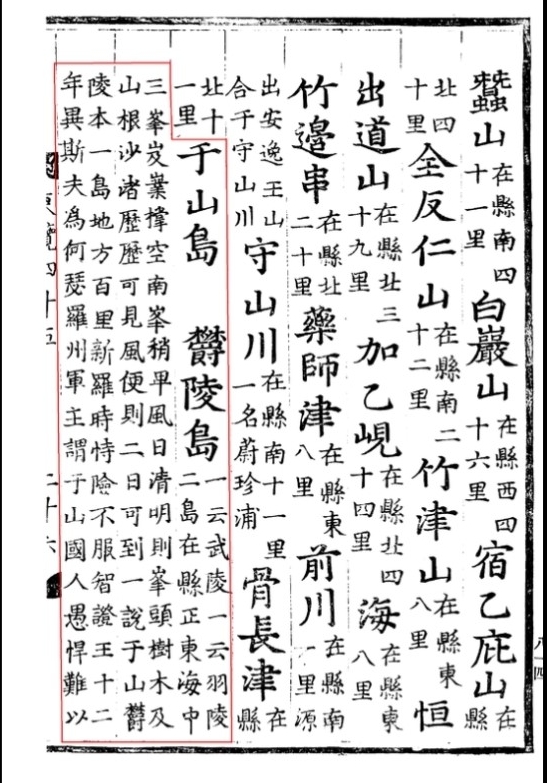 蠶山在縣南四十一里白巖山在縣西四十六里宿乙庇山在縣
北四十里全反仁山在縣南二十二里竹津山在縣東八里恒
出道山在縣北三十九里加乙峴在縣北四十四里海在縣東八里
竹邊串在縣北二十里藥師津在縣東八里前川在縣南一里源
出安逸王山合于守山川守山川在縣南十一里一名蔚珍浦骨長津在縣
北十一里于山島 欝陵島一云武陵一云羽陵二島在縣正東海中
三峯岌嶪撑空南峯稍卑風日清明則峯頭樹木及
山根沙渚歷歷可見風便則二日可到一說于山欝
陵本一島地方百里新羅時恃險不服智證王十二
年異斯夫為何瑟羅州軍主謂于山國人愚悍難以
東覽四十五 二十六